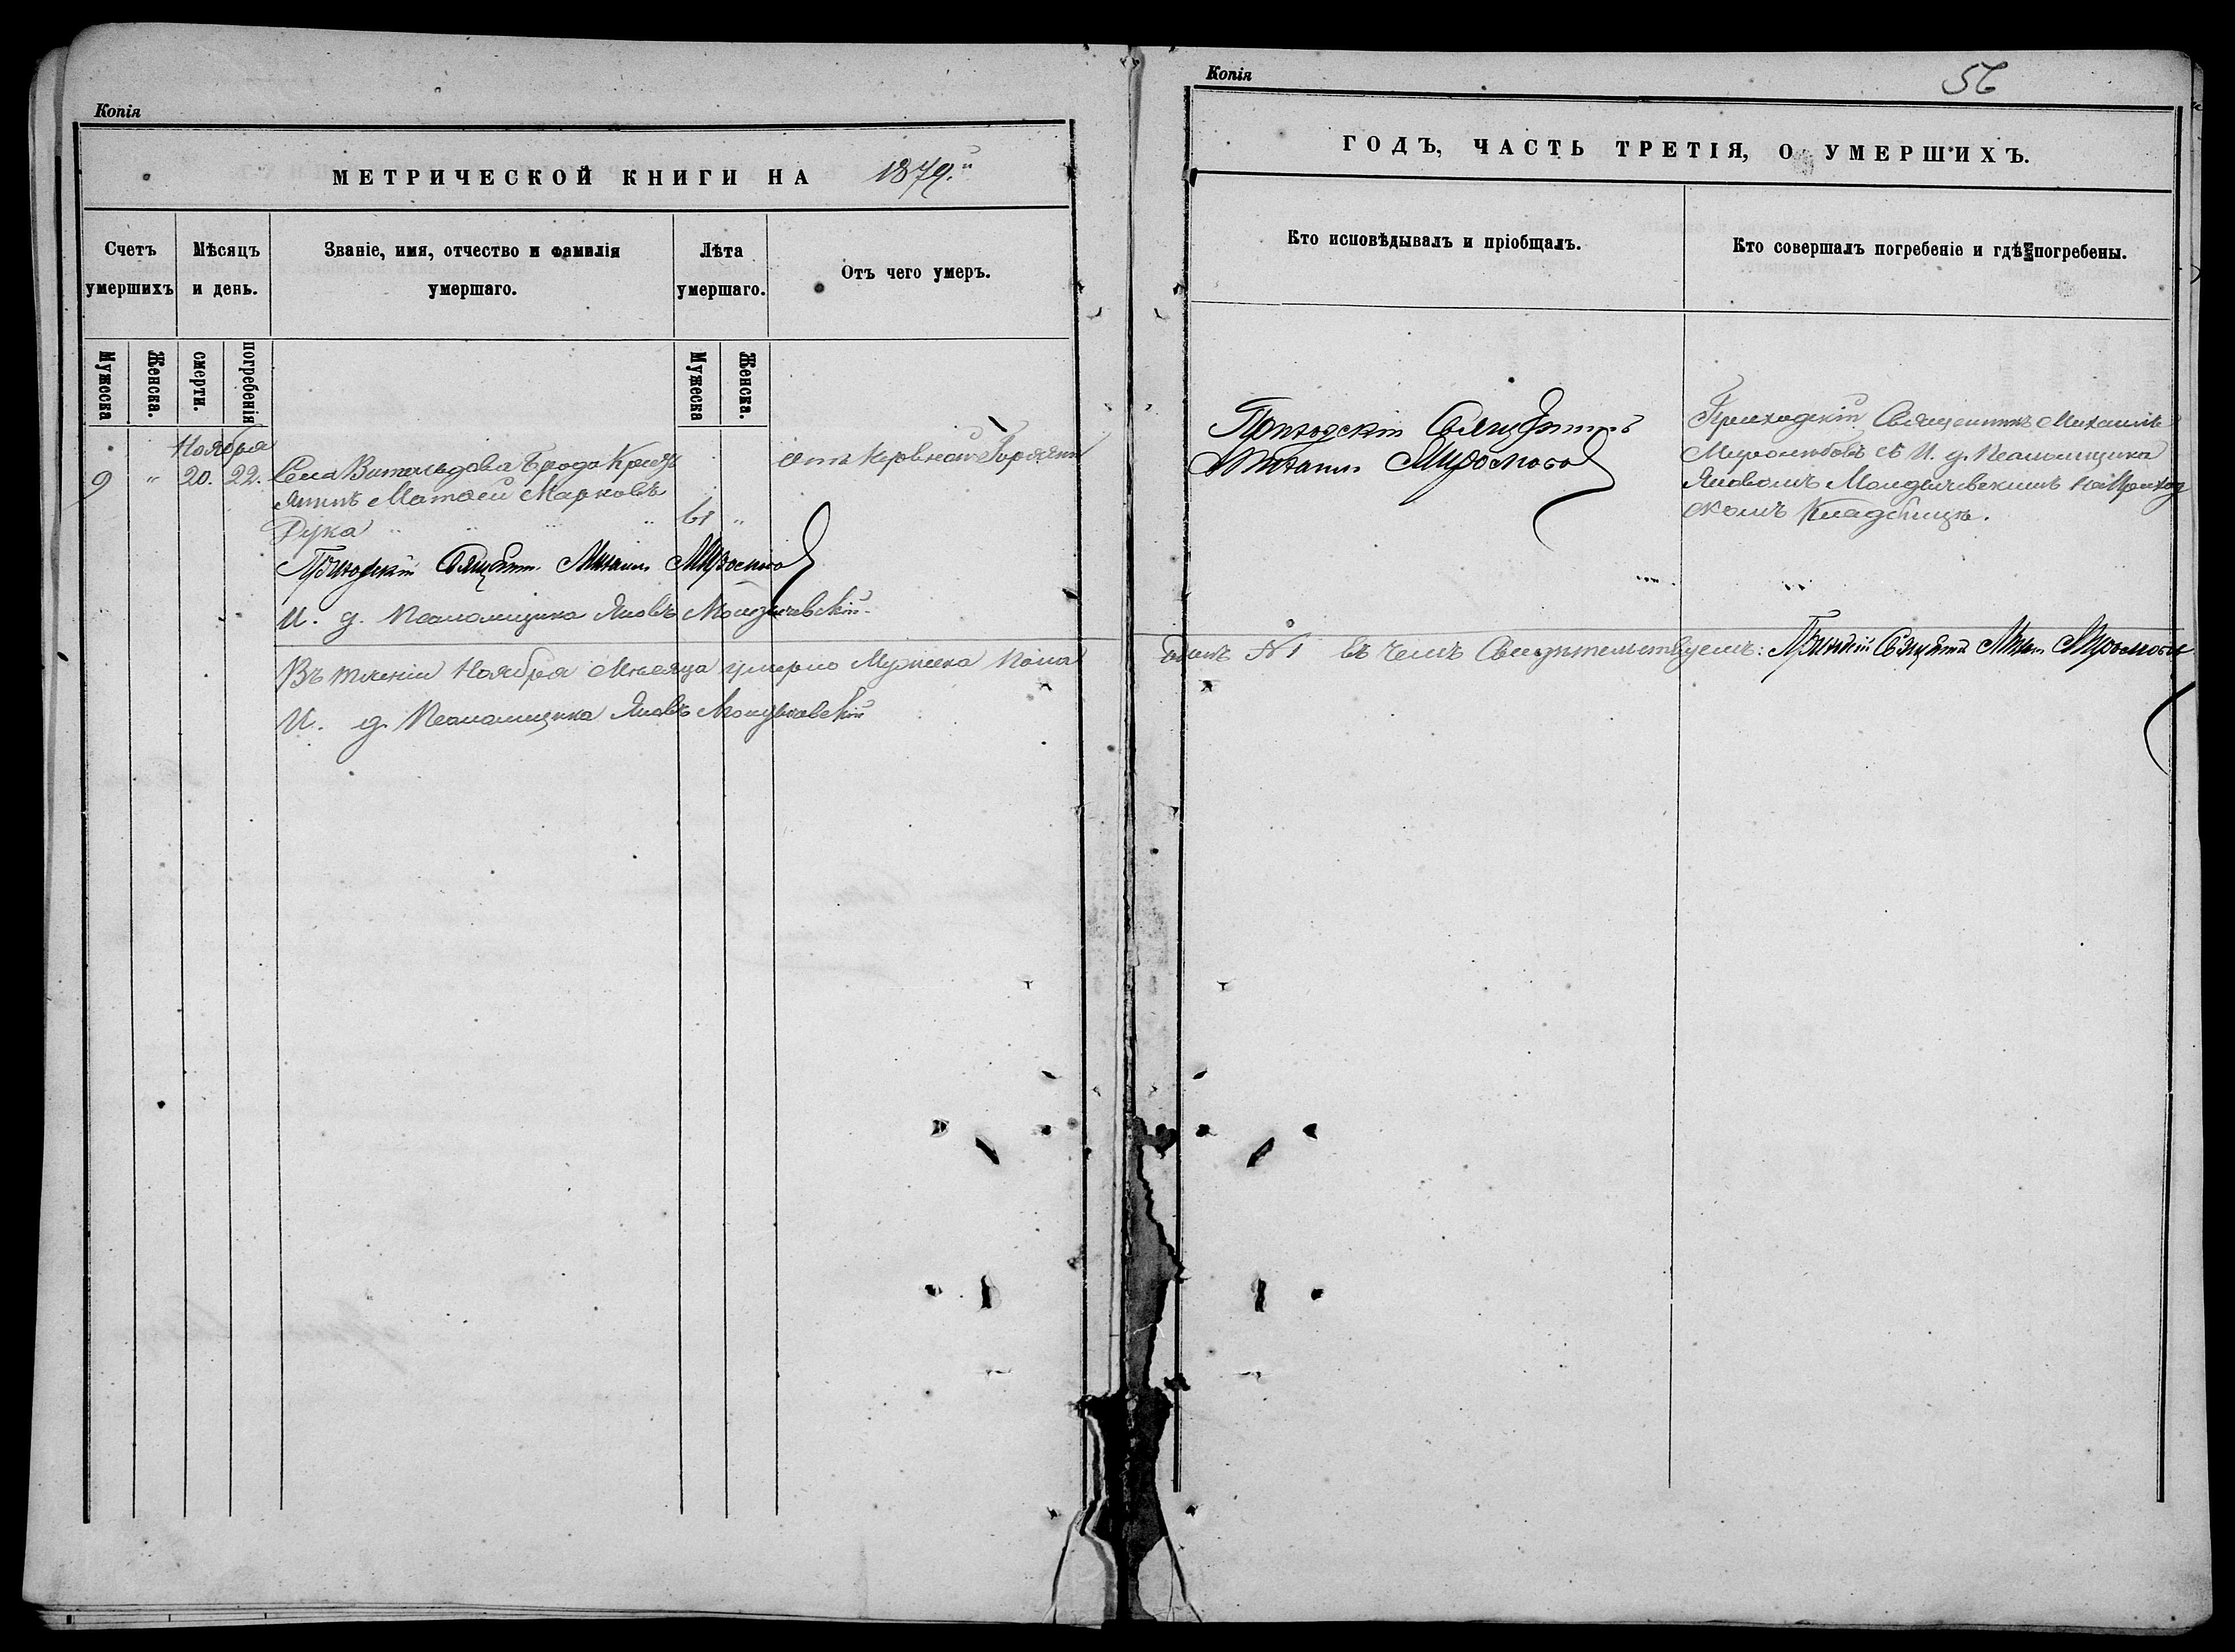 Копія
МЕТРИЧЕСКОЙ КНИГИ НА 1879.й
Счетъ умершихъ
Мѣсяцъ и день.
Званіе, имя, отчество и фамилія умершаго.
Лѣта умершаго.
Отъ чего умеръ.
Мужеска
Женска.
смерти.
погребенія
Мужеска
Женска.
Ноября
9 " 20. 22. Села Витольдова Брода Крестъ
янинъ Матѳей Марковъ
Рука " " " " 61 "
отъ Нервной Горячки
Приходскій Священн. Михаилъ Миролюбов
И. д. Псаломщика Яковъ
Въ теченіи Ноября Мѣсяца умерло Мужеска пола
И. д. Псаломщика Яковъ
Копія
56
ГОДЪ, ЧАСТЬ ТРЕТІЯ, О УМЕРШИХЪ.
Кто исповѣдывалъ и пріобщалъ.
Кто совершалъ погребеніе и гдѣ погребены.
Приходскій Священникъ
Михаилъ Миролюбов
Приходскій Священникъ Михаилъ
Миролюбовъ съ И. д. Псаломщика
Яковомъ на Приход
скомъ Кладбищѣ.
одинъ №1 въ чемъ Свидѣтельствуемъ: Приходскій Священн Михаилъ Миролюбов